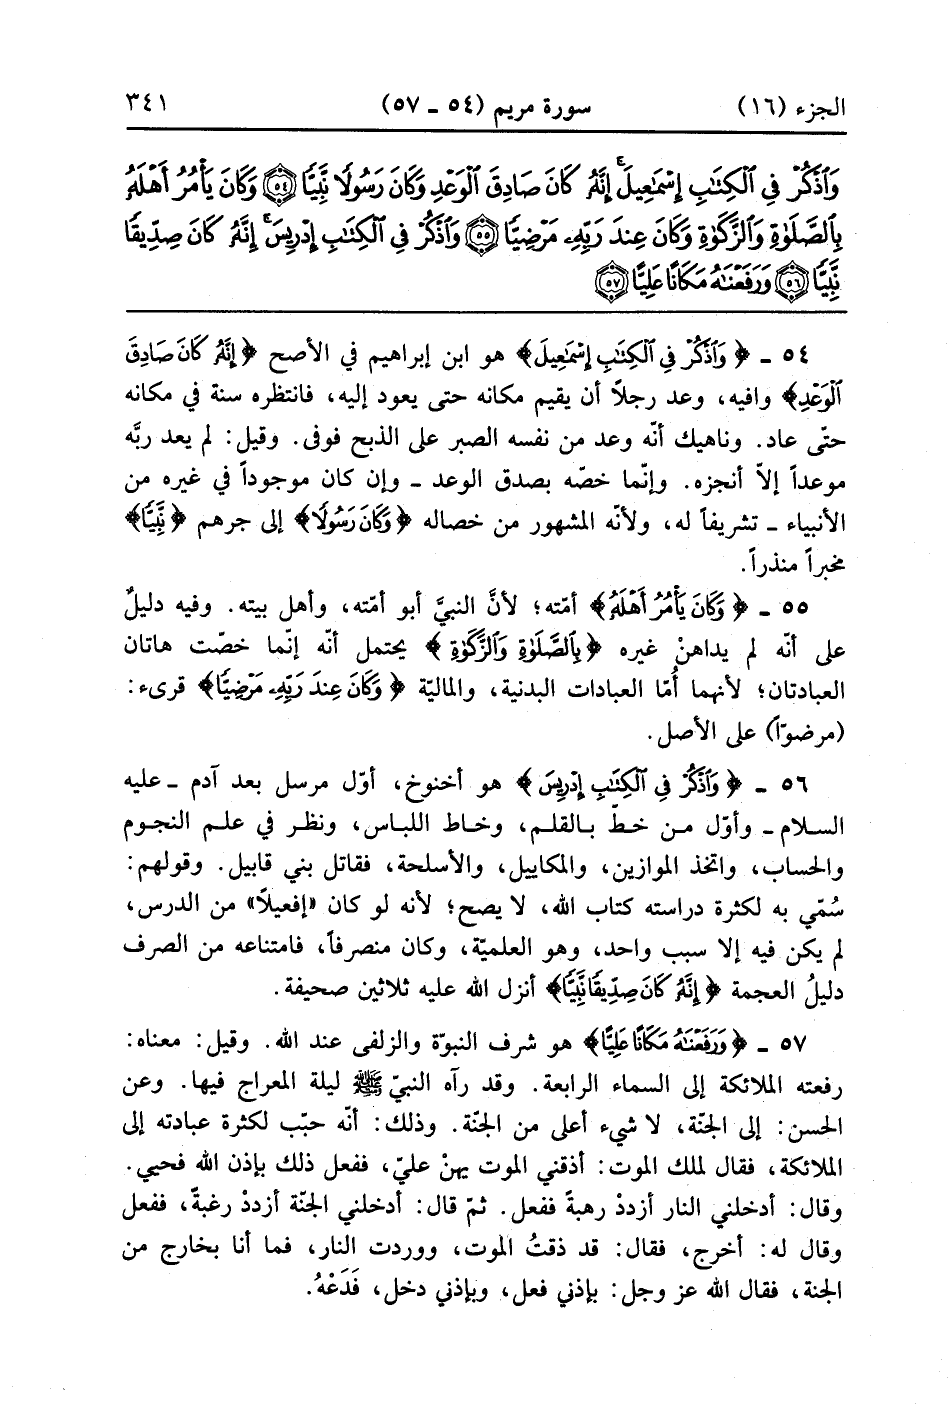 الجزء (١٦) سورة مريم (٥٤ ـ ٥٧) ٣٤١
وَٱذْكُرْ فِى ٱلْكِتَٰبِ إِسْمَٰعِيلَ ۚ إِنَّهُۥ كَانَ صَادِقَ ٱلْوَعْدِ وَكَانَ رَسُولًا نَّبِيًّا ﴿٥٤﴾ وَكَانَ يَأْمُرُ أَهْلَهُۥ
بِٱلصَّلَوٰةِ وَٱلزَّكَوٰةِ وَكَانَ عِندَ رَبِّهِۦ مَرْضِيًّا ﴿٥٥﴾ وَٱذْكُرْ فِى ٱلْكِتَٰبِ إِدْرِيسَ ۚ إِنَّهُۥ كَانَ صِدِّيقًا
نَّبِيًّا ﴿٥٦﴾ وَرَفَعْنَٰهُ مَكَانًا عَلِيًّا ﴿٥٧﴾
٥٤ ـ ﴿وَٱذْكُرْ فِى ٱلْكِتَٰبِ إِسْمَٰعِيلَ﴾ هو ابن إبراهيم في الأصح ﴿إِنَّهُۥ كَانَ صَادِقَ
ٱلْوَعْدِ﴾ وافيه، وعد رجلاً أن يقيم مكانه حتى يعود إليه، فانتظره سنة في مكانه
حتّى عاد. وناهيك أنّه وعد من نفسه الصبر على الذبح فوفى. وقيل: لم يعد ربَّه
موعداً إلاّ أنجزه. وإنّما خصّه بصدق الوعد ـ وإن كان موجوداً في غيره من
الأنبياء ـ تشريفاً له، ولأنّه المشهور من خصاله ﴿وَكَانَ رَسُولًا﴾ إلى جرهم ﴿نَّبِيًّا﴾
مخبراً منذراً.
٥٥ ـ ﴿وَكَانَ يَأْمُرُ أَهْلَهُۥ﴾ أمّته؛ لأنَّ النبيَّ أبو أمّته، وأهل بيته. وفيه دليلٌ
على أنّه لم يداهنْ غيره ﴿بِٱلصَّلَوٰةِ وَٱلزَّكَوٰةِ﴾ يحتمل أنّه إنّما خصّت هاتان
العبادتان؛ لأنهما أُمّا العبادات البدنية، والماليّة ﴿وَكَانَ عِندَ رَبِّهِۦ مَرْضِيًّا﴾ قرىء:
(مرضوّاً) على الأصل.
٥٦ ـ ﴿وَٱذْكُرْ فِى ٱلْكِتَٰبِ إِدْرِيسَ﴾ هو أخنوخ، أوّل مرسل بعد آدم ـ عليه
السلام ـ وأوّل من خطّ بالقلم، وخاط اللباس، ونظر في علم النجوم
والحساب، واتخذ الموازين، والمكاييل، والأسلحة، فقاتل بني قابيل. وقولهم:
سُمّي به لكثرة دراسته كتاب الله، لا يصح؛ لأنه لو كان «إفعيلاً» من الدرس،
لم يكن فيه إلا سبب واحد، وهو العلميّة، وكان منصرفاً، فامتناعه من الصرف
دليلُ العجمة ﴿إِنَّهُۥ كَانَ صِدِّيقًا نَّبِيًّا﴾ أنزل الله عليه ثلاثين صحيفة.
٥٧ ـ ﴿وَرَفَعْنَٰهُ مَكَانًا عَلِيًّا﴾ هو شرف النبوّة والزلفى عند الله. وقيل: معناه:
رفعته الملائكة إلى السماء الرابعة. وقد رآه النبيّ ﷺ ليلة المعراج فيها. وعن
الحسن: إلى الجنّة، لا شيء أعلى من الجنّة. وذلك: أنّه حبّب لكثرة عبادته إلى
الملائكة، فقال لملك الموت: أذقني الموت يهنْ عليّ، ففعل ذلك بإذن الله فحيي.
وقال: أدخلني النار أزددْ رهبةً ففعل. ثمّ قال: أدخلني الجنّة أزددْ رغبةً، ففعل
وقال له: أخرج، فقال: قد ذقتُ الموت، ووردت النار، فما أنا بخارج من
الجنة، فقال الله عز وجل: بإذني فعل، وبإذني دخل، فَدَعْهُ.